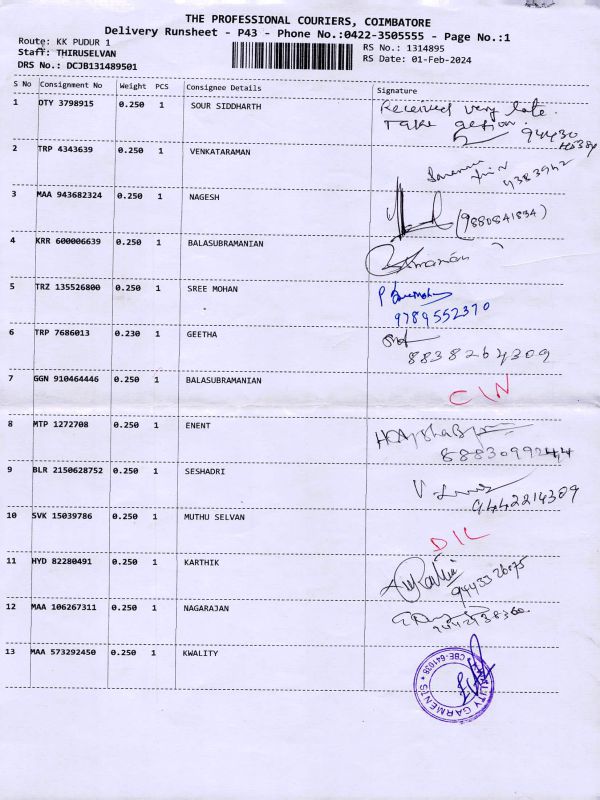 THE PROFESSIONAL COURIERS, COIMBATORE
Delivery Runsheet - P43 - Phone No.:0422-3505555 - Page No.:1
Route: KK PUDUR 1
Staff: THIRUSELVAN
DRS No.: DCJB131489501
RS No.: 1314895
RS Date: 01-Feb-2024
S No Consignment No Weight PCS Consignee Details Signature
1 DTY 3798915 0.250 1 SOUR SIDDHARTH Received very late.
Take action. 94430
2 TRP 4343639 0.250 1 VENKATARAMAN
4383962
3 MAA 943682324 0.250 1 NAGESH (9880841834)
4 KRR 600006639 0.250 1 BALASUBRAMANIAN
5 TRZ 135526800 0.250 1 SREE MOHAN
9789552370
6 TRP 7686013 0.230 1 GEETHA
8838264309
7 GGN 910464446 0.250 1 BALASUBRAMANIAN CIN
8 MTP 1272708 0.250 1 ENENT
8883099244
9 BLR 2150628752 0.250 1 SESHADRI
9442214309
10 SVK 15039786 0.250 1 MUTHU SELVAN DIL
11 HYD 82280491 0.250 1 KARTHIK
9443326075
12 MAA 106267311 0.250 1 NAGARAJAN
13 MAA 573292450 0.250 1 KWALITY
KWALITY GARMENTS * CBE-641038 *